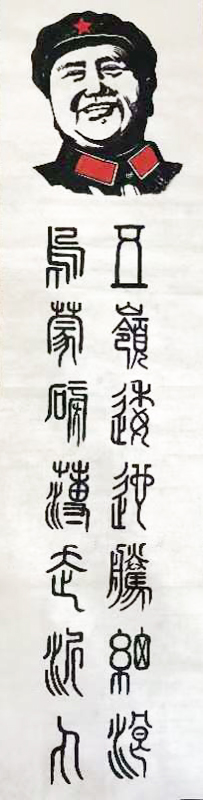 五嶺逶迤騰細浪
烏蒙磅薄走泥丸